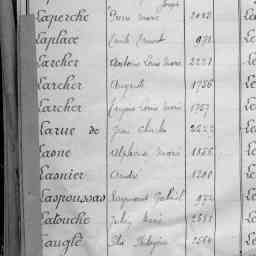 Joseph
Laperche Pierre Marie 2082 Le
Laplace Emile Ernest 972 Le
Larcher Antoine Louis Marie 2221 Le
Larcher Auguste 1756 Le
Larcher Louis Marie 1757 Le
Larue de Jean Charles Le
Lasne Alphonse Marie 1856 Le
Lasnier André 1200 Le
Laspoussas Raymond Gabriel 972 Le
Latouche Jules René Le
Laugle 2564 Le